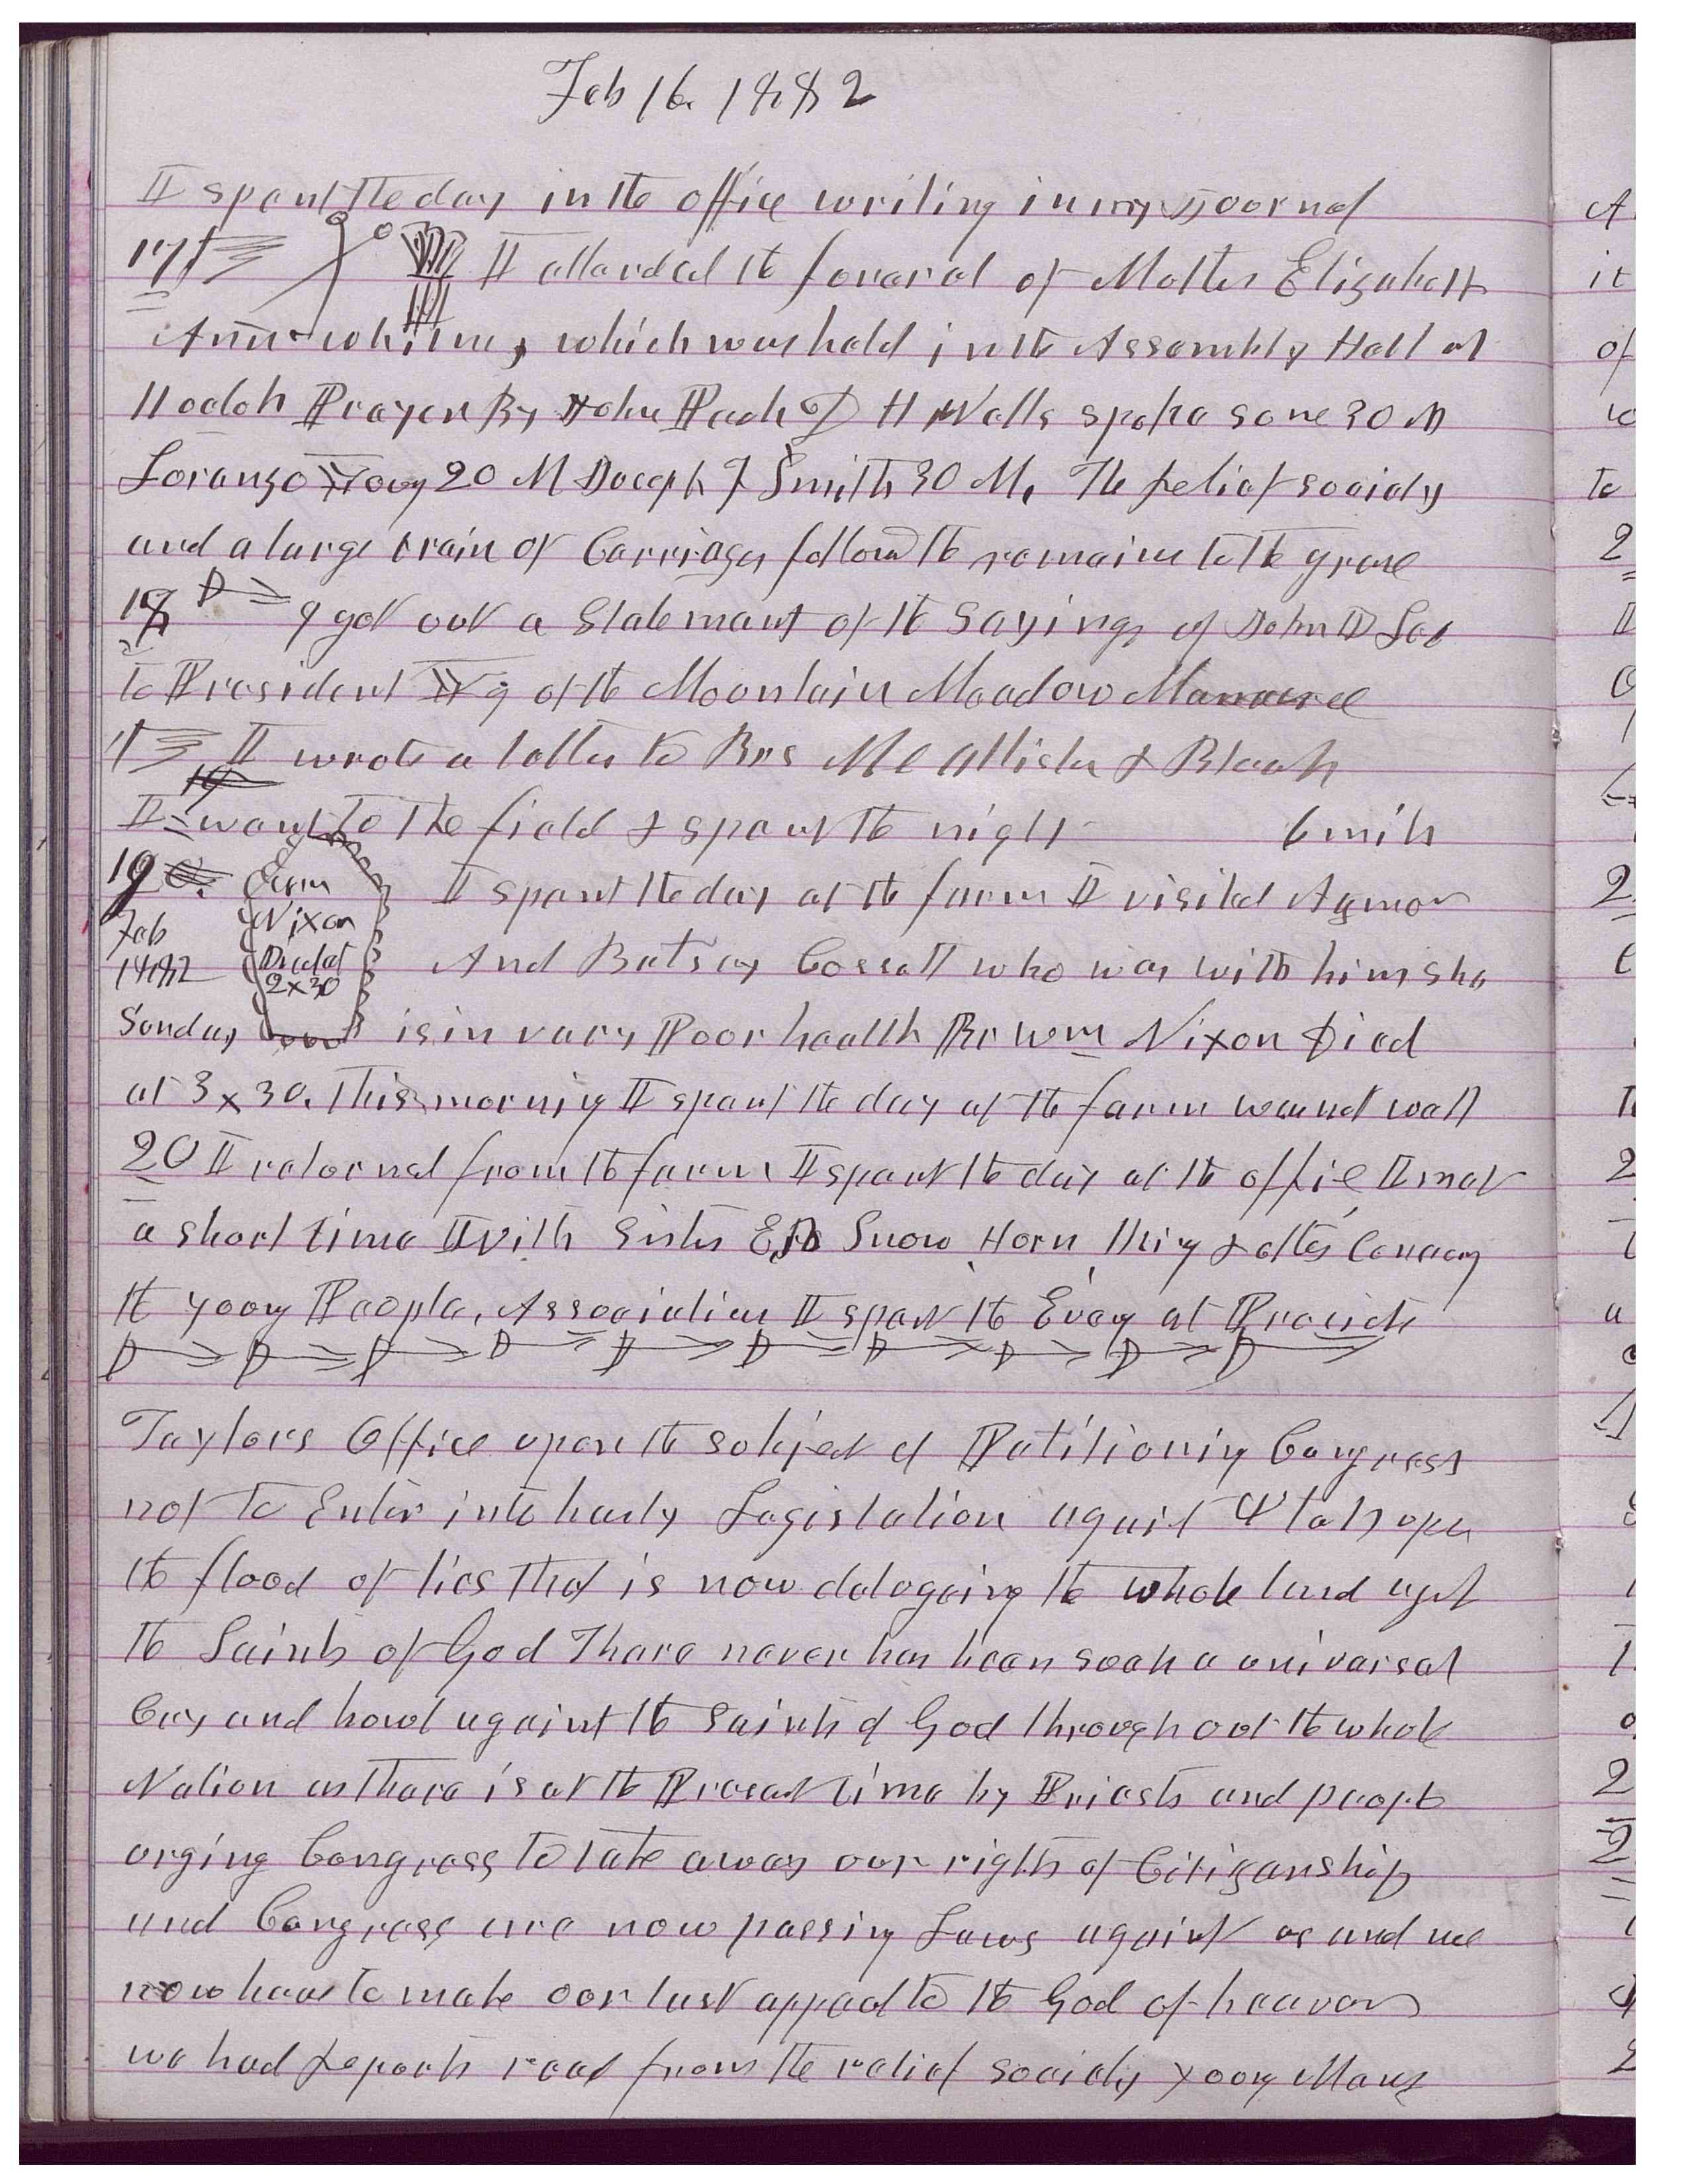 Feb 16. 1882
I spent the day in the office writing in my Journal
17 I attended the funeral of Mother Elizabeth
Ann Whitney, which was held in the Assembly Hall at
11 oclok Prayer By John Pack D H Wells spoke some 30 M
Lorenzo Young 20 M Joseph F Smith 30 M. The Relief society
and a large train of Carriages followd the remains to the grave
18 I got out a Statement of the Sayings of John D Lee
to President Yg of the Mountain Meadow Massacree
I wrote a letter to Brs McAllister & Bleak
I went to the field & spent the night 6 mils
19 I spent the day at the farm I visited Azmon
Feb
1882
Sunday
Wm
Nixon
Died at
2 x 30
And Betsey Cossett who was with him she
is in very Poor health Br Wm Nixon Died
at 3 x 30. This morning I spent the day at the farm was not well
20 I returned from the farm I spent the day at the offie I met
a short time With Sister E R Snow Horn King & others Concerng
the young People, Association I spent the Eveng at Presidt
Taylors Office upon the subject of Petitioning Congress
not to Enter into hasty Legislation against Utah upon
the flood of lies that is now delugeing the whole land agst
the Saints of God There never has been such a universal
Cry and howl against the Saints of God through out the whole
Nation as there is at the Present time by Priests and people
urging Congress to take away our rights of Citizenship
and Congress are now passing Laws against us and we
now have to make our last appeal to the God of heaven
we had Reports read from the relief society young Mens